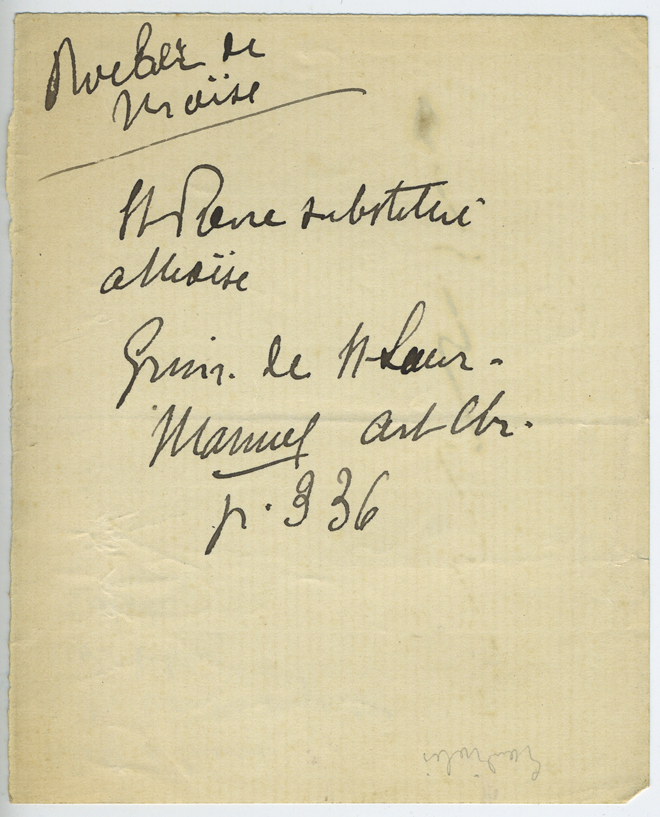 Rocher de
Moïse
St Pierre substitué
a Moïse
Grim. de St Laur.
Manuel art Chr.
p. 336